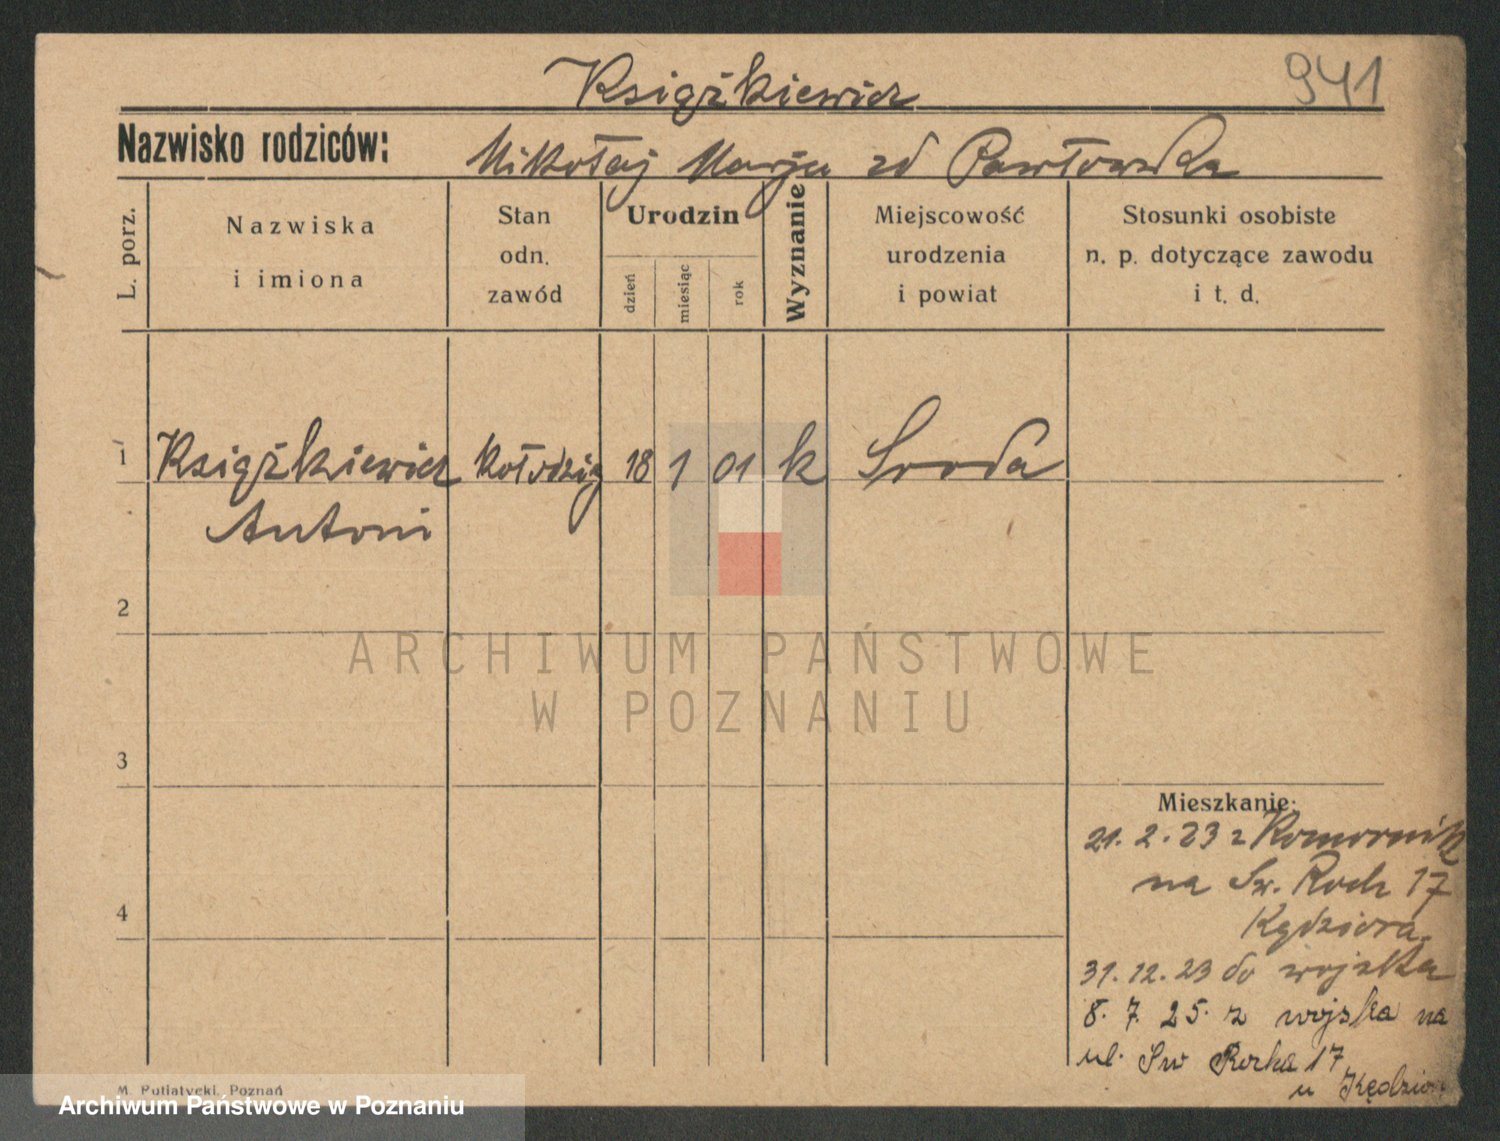 Książkiewicz
941
Nazwisko rodziców:
Mikołaj Marja zd Pawłowska
L. porz.
Nazwiska
i imiona
Stan
odn.
zawód
Urodzin
dzień
miesiąc
rok
Wyznanie
Miejscowość
urodzenia
i powiat
Stosunki osobiste
n. p. dotyczące zawodu
i t. d.
1 Książkiewicz Kołodziej 18 1 01 k Sroda
Antoni
2
3
4
Mieszkanie:
21. 2. 23 z Komornik
na Sw. Roch 17
Kędziora
31. 12. 23 do wojska
8. 7. 25. z wojska na
ul. Sw Rocha 17
u
M. Putiatycki, Poznań
ARCHIWUM PAŃSTWOWE
W POZNANIU
Archiwum Państwowe w Poznaniu